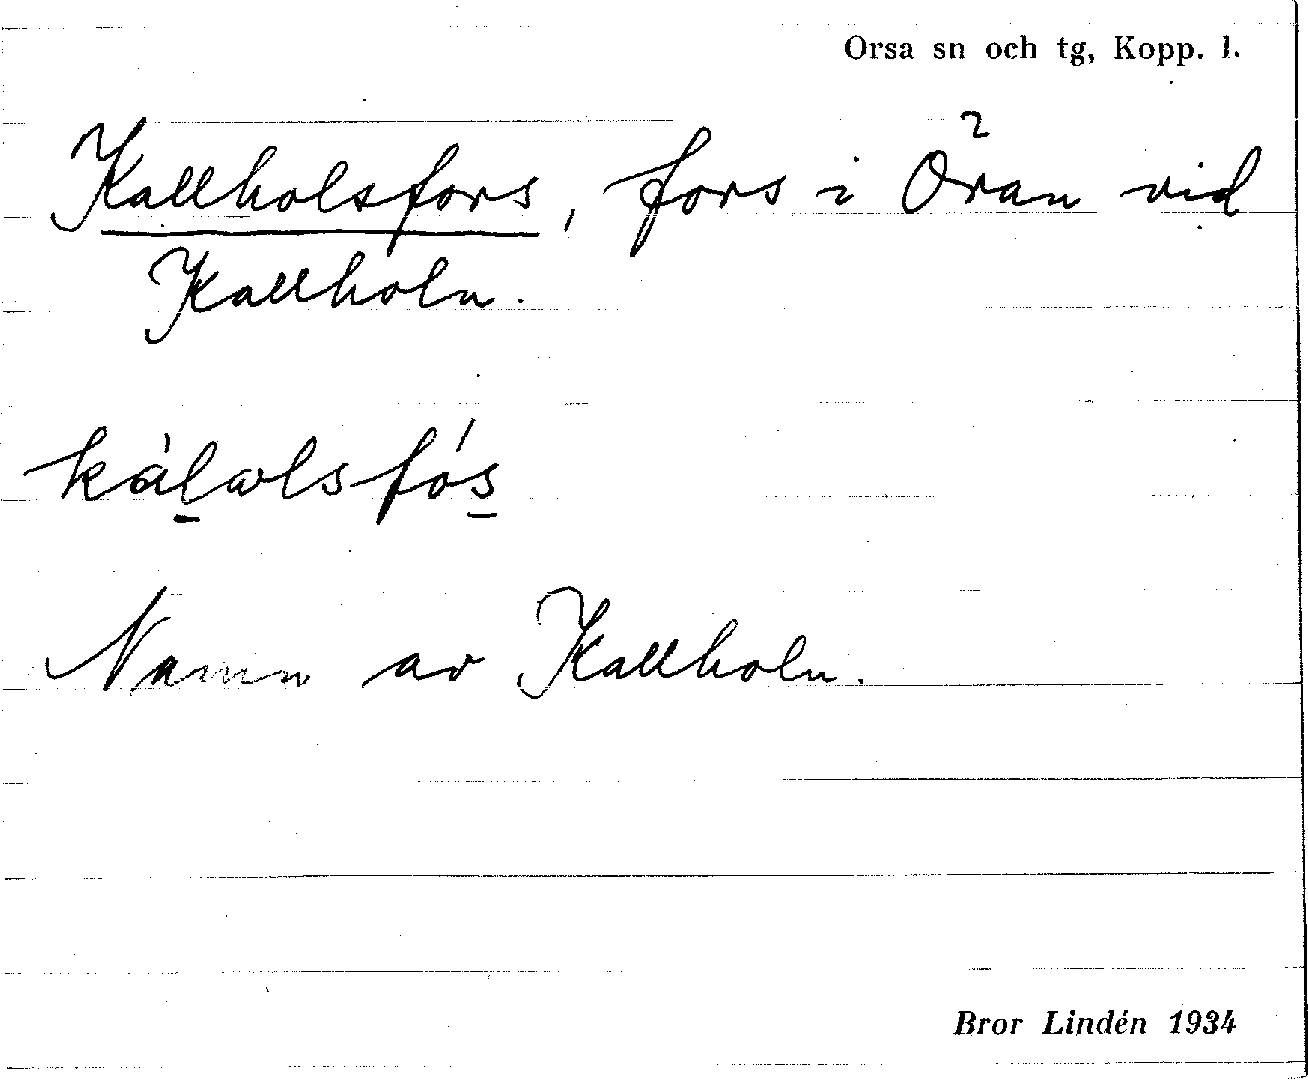 Orsa sn och tg, Kopp. l.
Kallholsfors, fors i Öran vid
Kallholn.
kàl̠ωlsfós̠
Namn av Kallholn.
Bror Lindén 1934